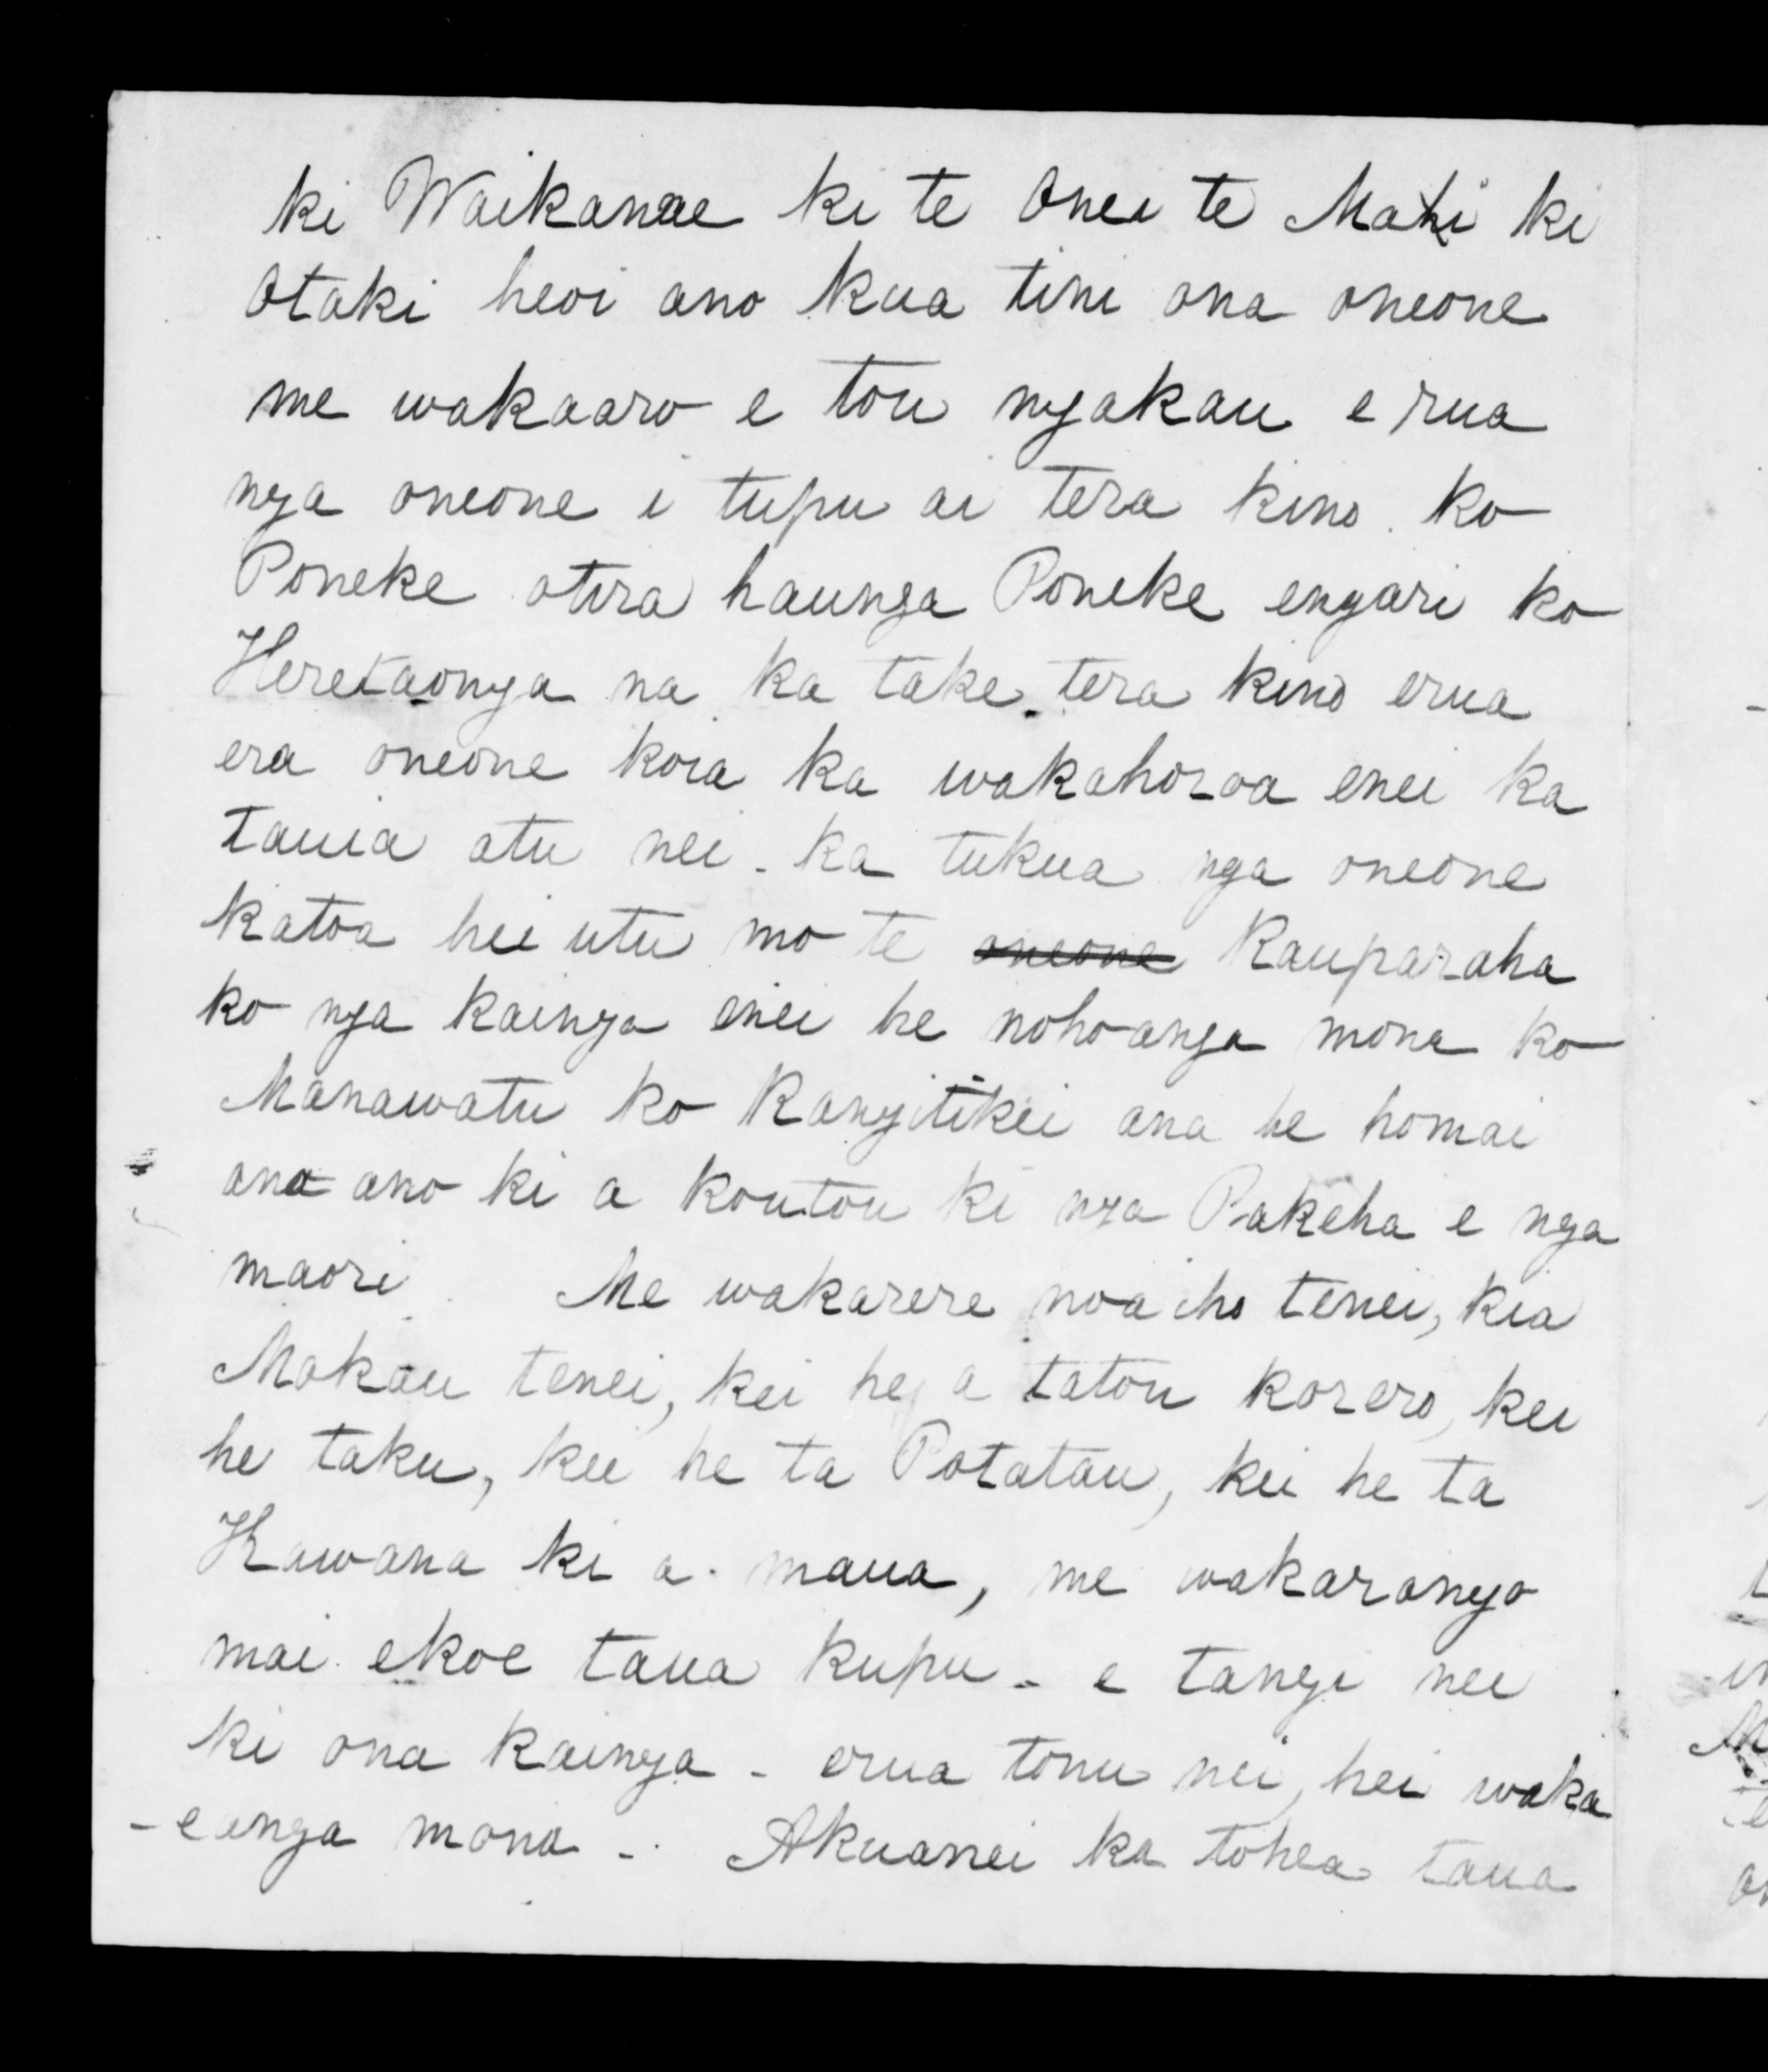 ki Waikanae ki te Onei te Mahi ki
Otaki heoi ano kua tini ona oneone
me wakaaro e tou ngakau e rua
nga oneone i tupu ai tera kino. ko
Poneke otira haunga Poneke engari ko
Heretaonga na ka take tera kino erua
era oneone koia ka wakahoroa enei ka
tauia atu nei - ka tukua nga oneone
katoa hei utu mo te oneone Rauparaha
ko nga kainga enei he nohoanga mona ko
Manawatu ko Rangitikei ana he homai
ana ano ki a koutou ki nga Pakeha e nga
maori. Me wakarere noa iho tenei, kia
Makau tenei, kei he a tatou korero, kei
he taku, kei he ta Potatau, kei he ta
Kawana ki a maua, me wakarongo
mai ekoe taua kupu - e tangi nei
ki ona kainga - erua tonu nei, hei waka
-eanga mona - Akuanei ka tohea taua